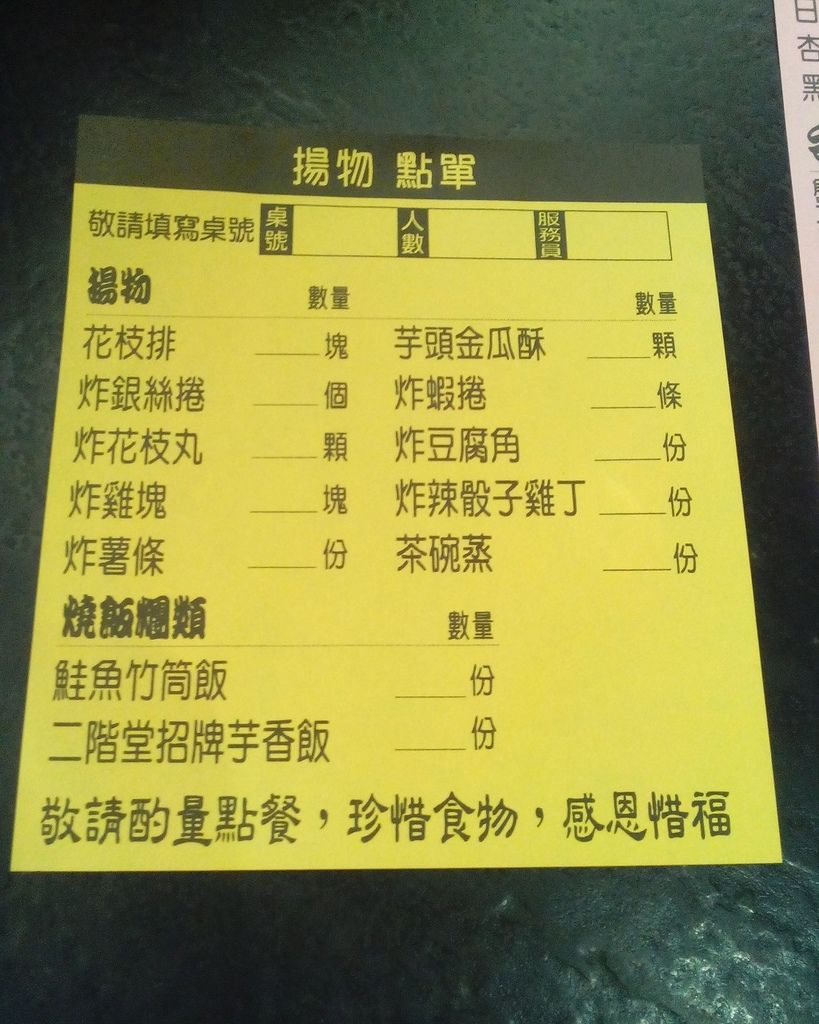 揚物 點單
敬請填寫桌號 桌號 人數 服務員
揚物 數量 數量
花枝排 ____塊 芋頭金瓜酥 ____顆
炸銀絲捲 ____個 炸蝦捲 ____條
炸花枝丸 ____顆 炸豆腐角 ____份
炸雞塊 ____塊 炸辣骰子雞丁 ____份
炸薯條 ____份 茶碗蒸 ____份
燒飯爛類 數量
鮭魚竹筒飯 ____份
二階堂招牌芋香飯 ____份
敬請酌量點餐，珍惜食物，感恩惜福
杏
黑